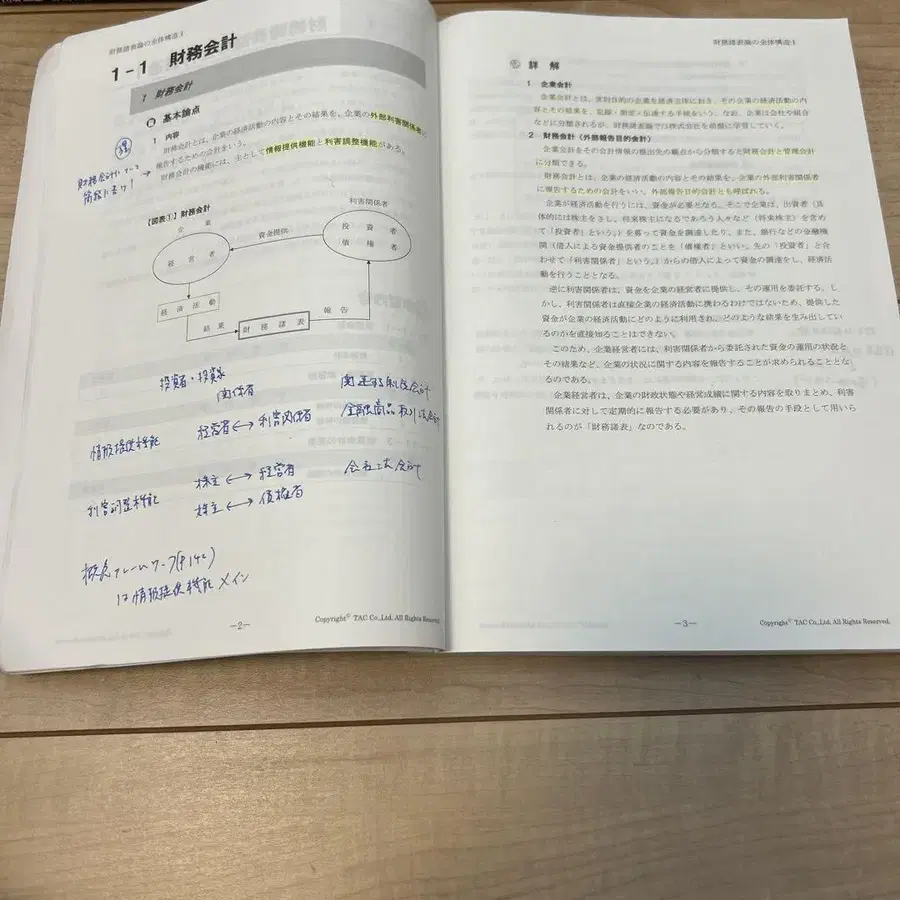 財務諸表論の全体構造1
1-1 財務会計
1 財務会計
基本論点
1 内容
財務会計とは、企業の経済活動の内容とその結果を、企業の外部利害関係者に
報告するための会計をいう。
財務会計の機能には、主として情報提供機能と利害調整機能がある。
簡潔に書け!
【図表①】財務会計
企業
利害関係者
経営者
資金提供
投資者
債権者
経済活動
結果
財務諸表
報告
投資者・投資家
関係者
関連する制度会計
情報提供機能
経営者↔利害関係者
金融商品取引法会計
利害調整機能
株主↔経営者
会社法会計
株主↔債権者
概念フレームワーク(P146)
は情報提供機能メイン
-2-
Copyright© TAC Co.,Ltd. All Rights Reserved.
財務諸表論の全体構造1
詳解
1 企業会計
企業会計とは、営利目的の企業を経済主体におき、その企業の経済活動の内
容とその結果を、記録・測定・伝達する手続をいう。なお、企業は会社や組合
などに分類されるが、財務諸表論では株式会社を前提に学習していく。
2 財務会計(外部報告目的会計)
企業会計をその会計情報の提出先の観点から分類すると財務会計と管理会計
に分類できる。
財務会計とは、企業の経済活動の内容とその結果を、企業の外部利害関係者
に報告するための会計をいい、外部報告目的会計とも呼ばれる。
企業が経済活動を行うには、資金が必要となる。そこで企業は、出資者(具
体的には株主をさし、将来株主になるであろう人々など(将来株主)を含め
て「投資者」という。)を募って資金を調達したり、また、銀行などの金融機
関(借入による資金提供者のことを「債権者」といい、先の「投資者」と合
わせて「利害関係者」という。)からの借入によって資金の調達をし、経済活
動を行うこととなる。
逆に利害関係者は、資金を企業の経営者に提供し、その運用を委託する。し
かし、利害関係者は直接企業の経済活動に携わるわけではないため、提供した
資金が企業の経済活動にどのように利用され、どのような結果を生み出してい
るのかを直接知ることはできない。
このため、企業経営者には、利害関係者から委託された資金の運用の状況と
その結果など、企業の状況に関する内容を報告することが求められることとな
るのである。
企業経営者は、企業の財政状態や経営成績に関する内容を取りまとめ、利害
関係者に対して定期的に報告する必要があり、その報告の手段として用いら
れるのが「財務諸表」なのである。
-3-
Copyright© TAC Co.,Ltd. All Rights Reserved.